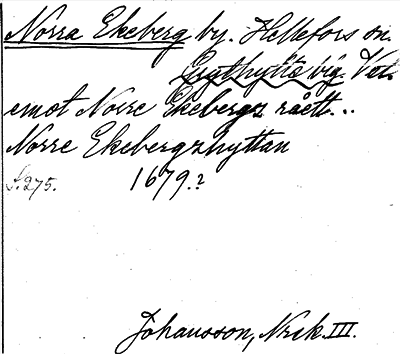 Norra Ekeberg by. Hellefors sn.
Grythytte bg. Vet.
emot Norre Ekebergz råett...
Norre Ekebergzhyttan
S. 275. 1679.?
Johansson, Nrik. III.